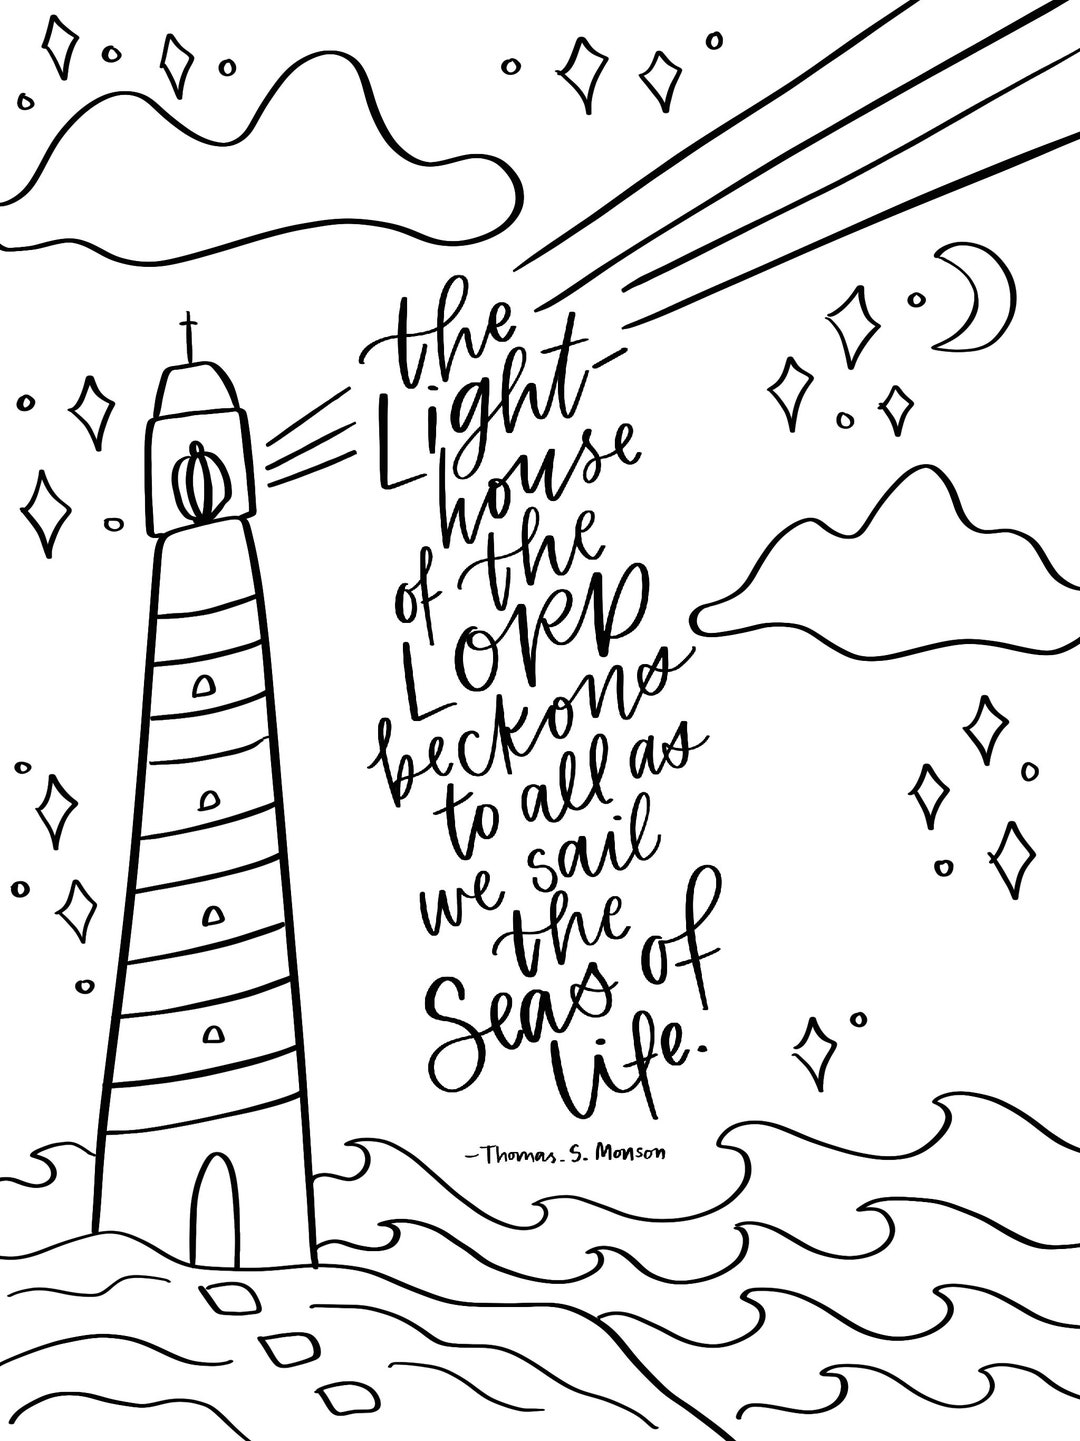 the
Light-
house
of the
LORD
beckons
to all as
we sail
the
Seas of
Life.
-Thomas. S. Monson